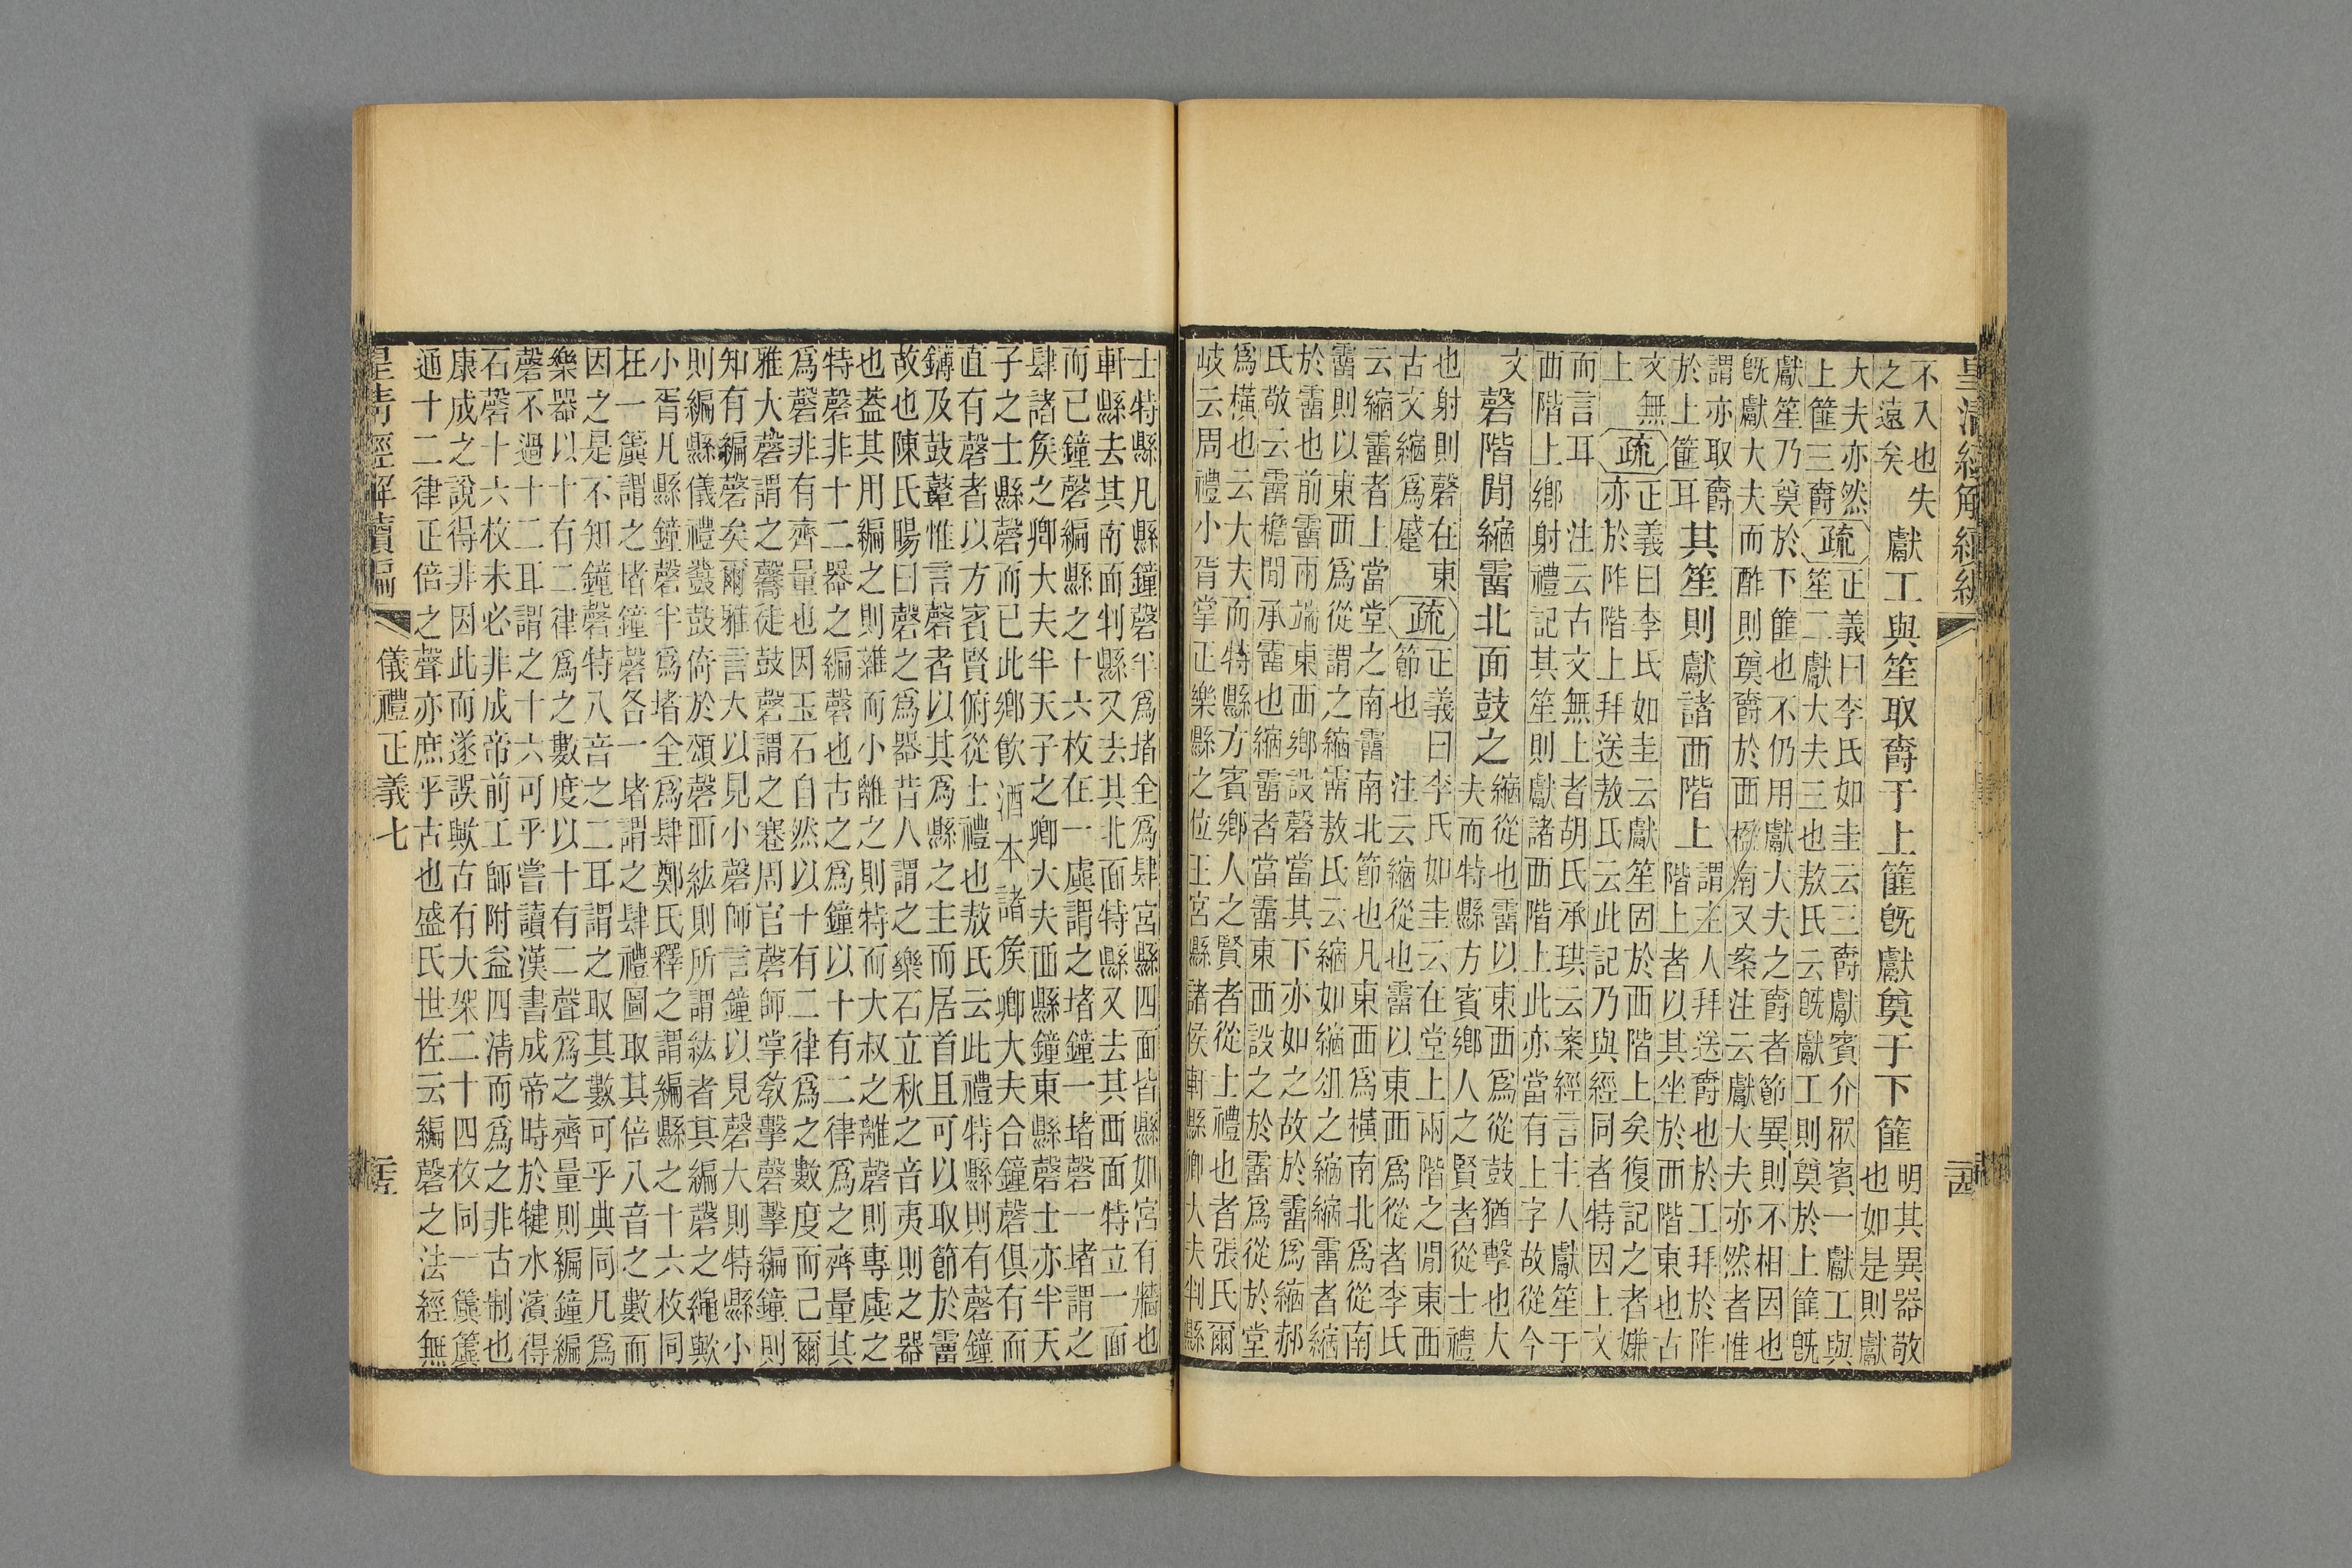 皇清經解續編
不入也失
之遠矣
獻工與笙取爵于上篚旣獻奠于下篚
明其異器敬
也如是則獻
大夫亦然
上篚三爵
疏
正義曰李氏如圭云三爵獻賓介眾賓一獻工與
笙二獻大夫三也敖氏云旣獻工則奠於上篚旣
獻笙乃奠於下篚也不仍用獻大夫之爵者節異則不相因也
旣獻大夫而酢則奠爵於西楹南又案注云獻大夫亦然者惟
謂亦取爵
於上篚耳
其笙則獻諸西階上
謂主人拜送爵也於工拜於阼
階上者以其坐於西階東也古
文無
上
疏
正義曰李氏如圭云獻笙固於西階上矣復記之者嫌
亦於阼階上拜送敖氏云此記乃與經同者特因上文
而言耳　注云古文無上者胡氏承珙云案經言主人獻笙于
西階上鄉射禮記其笙則獻諸西階上此亦當有上字故從今
文
磬階閒縮霤北面鼓之
縮從也霤以東西爲從鼓猶擊也大
夫而特縣方賓鄉人之賢者從士禮
也射則磬在東
古文縮爲蹙
疏
正義曰李氏如圭云在堂上兩階之閒東西
節也　注云縮從也霤以東西爲從者李氏
云縮霤者上當堂之南霤南北節也凡東西爲橫南北爲從南
霤則以東西爲從謂之縮霤敖氏云縮如縮俎之縮縮霤者縮
於霤也前霤兩端東西鄉設磬當其下亦如之故於霤爲縮郝
氏敬云霤檐閒承霤也縮霤者當霤東西設之於霤爲從於堂
爲橫也云大夫而特縣方賓鄉人之賢者從士禮也者張氏爾
岐云周禮小胥掌正樂縣之位王宮縣諸侯軒縣卿大夫判縣
士特縣凡縣鐘磬半爲堵全爲肆宮縣四面皆縣如宮有牆也
軒縣去其南面判縣又去其北面特縣又去其西面特立一面
而已鐘磬編縣之十六枚在一虡謂之堵鐘一堵磬一堵謂之
肆諸矦之卿大夫半天子之卿大夫西縣鐘東縣磬士亦半天
子之士縣磬而已此鄉飲酒本諸矦卿大夫合鐘磬俱有而
直有磬者以方賓賢俯從士禮也敖氏云此禮特縣則有磬鐘
鑮及鼓鼙惟言磬者以其爲縣之主而居首且可以取節於霤
故也陳氏暘曰磬之爲器昔人謂之樂石立秋之音夷則之器
也蓋其用編之則雜而小離之則特而大叔之離磬則專虡之
特磬非十二器之編磬也古之爲鐘以十有二律爲之齊量其
爲磬非有齊量也因玉石自然以十有二律爲之數度而已爾
雅大磬謂之毊徒鼓磬謂之寋周官磬師掌敎擊磬擊編鐘則
知有編磬矣爾雅言大以見小磬師言鐘以見磬大則特縣小
則編縣儀禮鼗鼓倚於頌磬西紘則所謂紘者其編磬之繩歟
小胥凡縣鐘磬半爲堵全爲肆鄭氏釋之謂編縣之十六枚同
在一簴謂之堵鐘磬各一堵謂之肆禮圖取其倍八音之數而
因之是不知鐘磬特八音之二耳謂之取其數可乎典同凡爲
樂器以十有二律爲之數度以十有二聲爲之齊量則編鐘編
磬不過十二耳謂之十六可乎嘗讀漢書成帝時於犍水濱得
石磬十六枚未必非成帝前工師附益四清而爲之非古制也
康成之說得非因此而遂誤歟古有大架二十四枚同一簨簴
通十二律正倍之聲亦庶乎古也盛氏世佐云編磬之法經無
皇淸經解續編
儀禮正義七